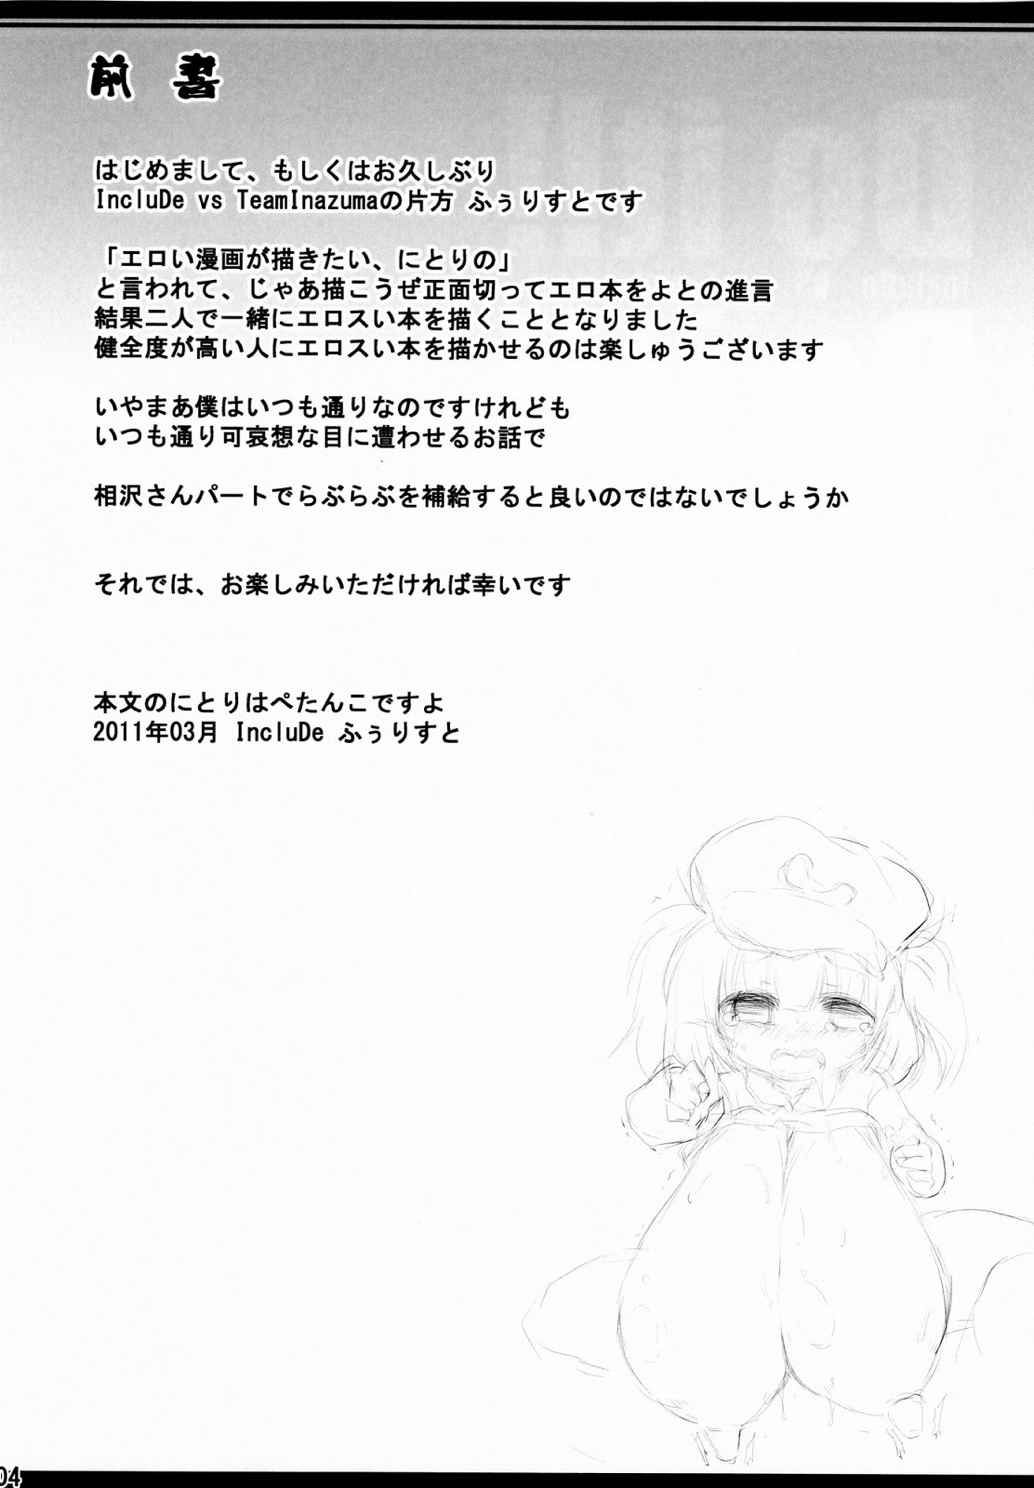 前書
はじめまして、もしくはお久しぶり
IncluDe vs TeamInazumaの片方 ふぅりすとです
「エロい漫画が描きたい、にとりの」
と言われて、じゃあ描こうぜ正面切ってエロ本をよとの進言
結果二人で一緒にエロスい本を描くこととなりました
健全度が高い人にエロスい本を描かせるのは楽しゅうございます
いやまあ僕はいつも通りなのですけれども
いつも通り可哀想な目に遭わせるお話で
相沢さんパートでらぶらぶを補給すると良いのではないでしょうか
それでは、お楽しみいただければ幸いです
本文のにとりはぺたんこですよ
2011年03月 IncluDe ふぅりすと
04